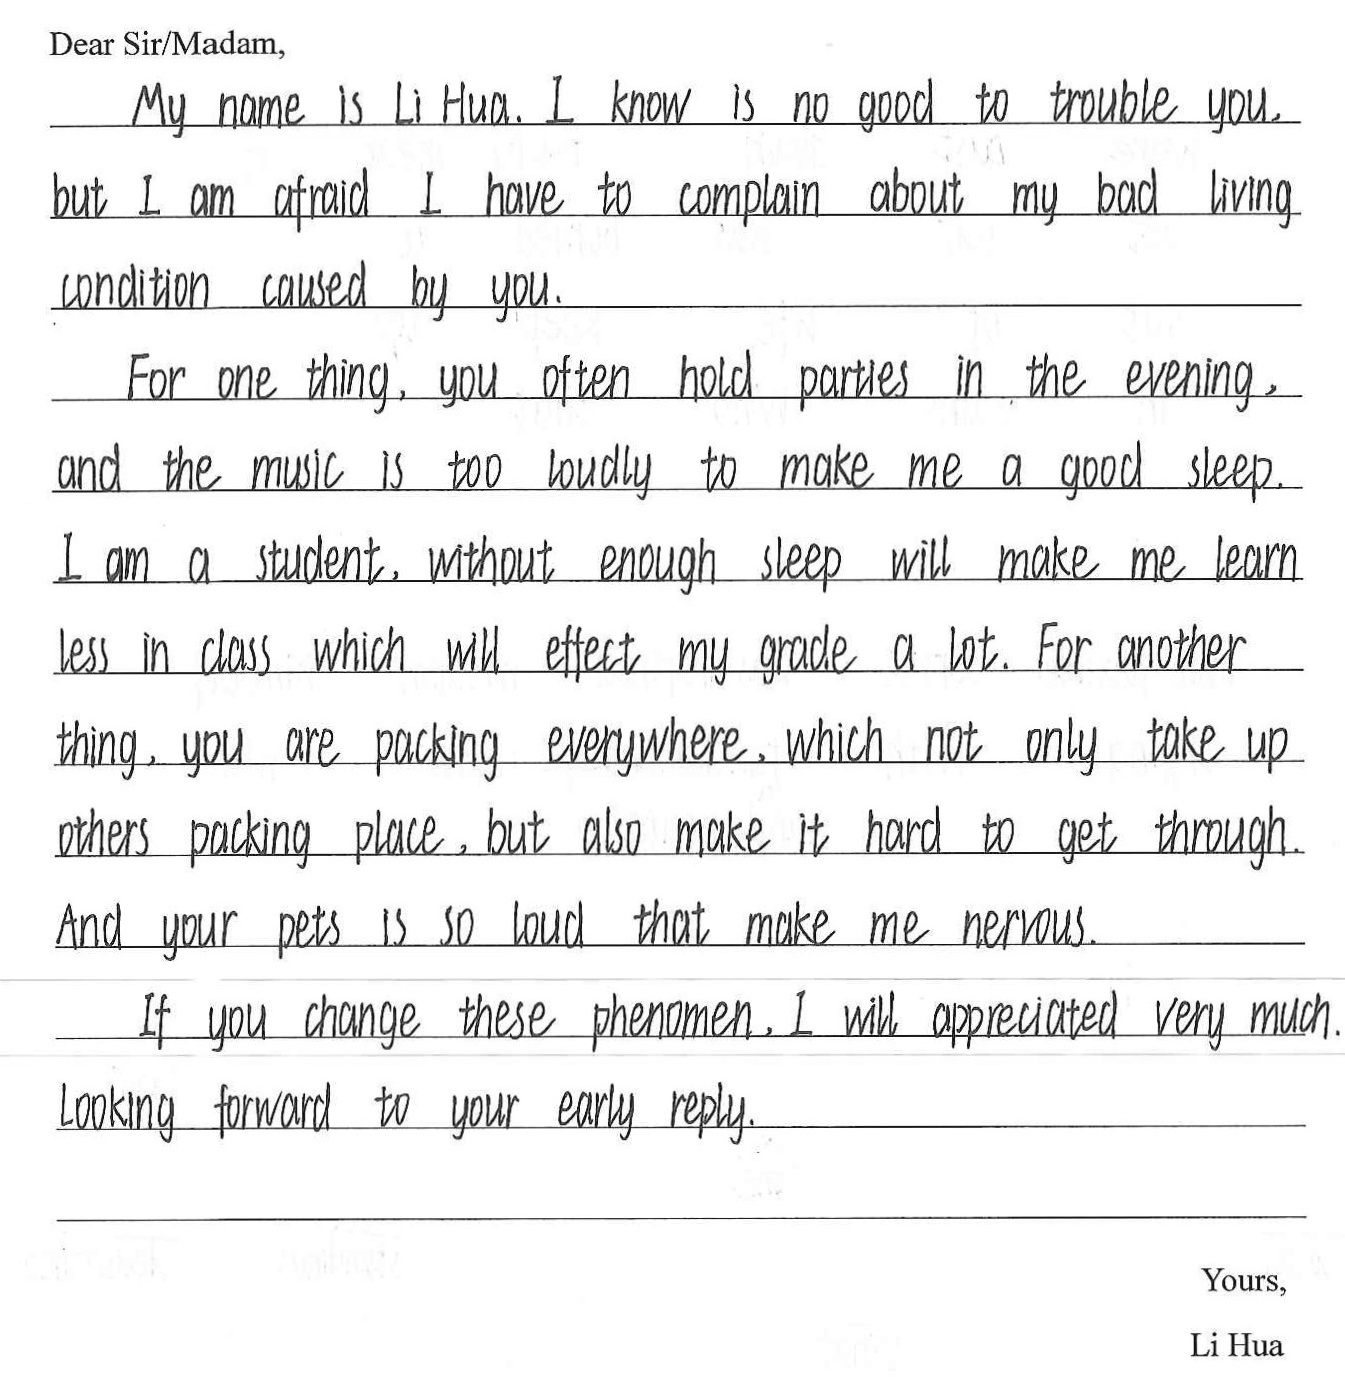 Dear Sir/Madam,
My name is Li Hua. I know is no good to trouble you,
but I am afraid I have to complain about my bad living
condition caused by you.
For one thing, you often hold parties in the evening,
and the music is too loudly to make me a good sleep.
I am a student, without enough sleep will make me learn
less in class which will effect my grade a lot. For another
thing, you are packing everywhere, which not only take up
others packing place, but also make it hard to get through.
And your pets is so loud that make me nervous.
If you change these phenomen, I will appreciated very much.
Looking forward to your early reply.
Yours,
Li Hua